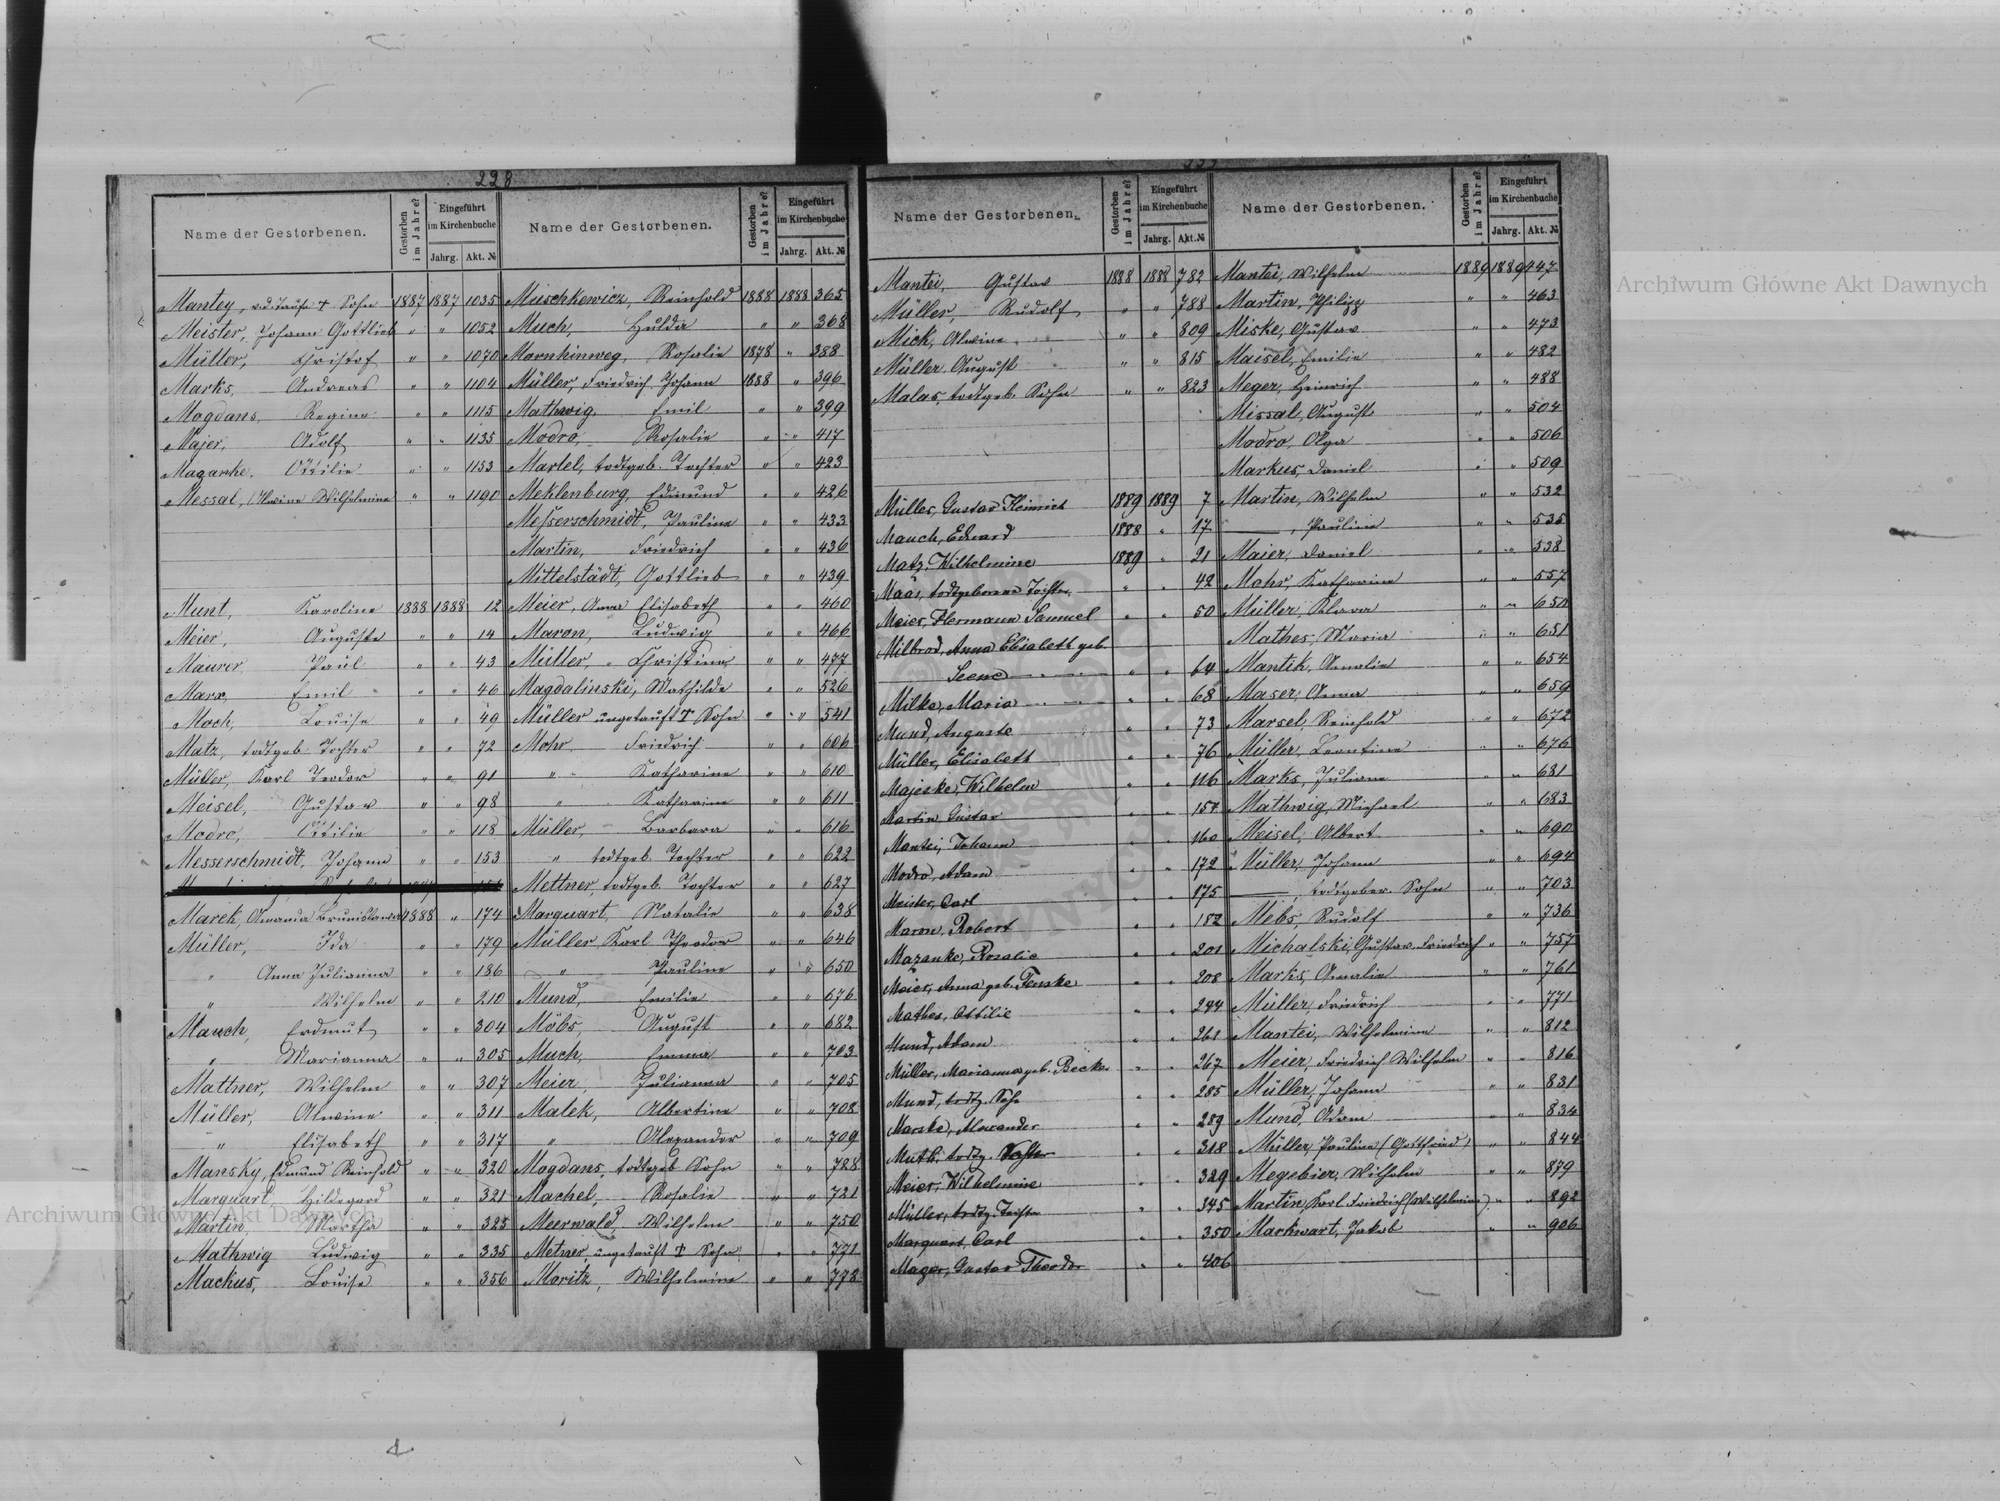 228
Name der Gestorbenen.
Gestorben im Jahre?
Eingeführt im Kirchenbuche
Jahrg. Akt. №
Mantey, v.d. Taufe † Sohn 1887 1887 1035
Meister, Johann Gottlieb " " 1052
Müller, Christof " " 1070
Marks, Andreas " " 1104
Mogdans, Regine " " 1115
Majer, Adolf " " 1135
Maganke, Ottilie " " 1153
Messal, Alwine Wilhelmine " " 1190
Munt, Karoline 1888 1888 12
Meier, Auguste " " 14
Maurer, Paul " " 43
Marx, Emil " " 46
Moch, Louise " " 49
Matz, todtgeb. Tochter " " 72
Müller, Karl Teodor " " 91
Meisel, Gustav " " 98
Modro, Ottilie " " 118
Messerschmidt, Johann " " 153
Marek, Amanda Bronislawa 1888 " 174
Müller, Ida " " 179
" Anna Julianna " " 186
" Wilhelm " " 210
Mauch, Erdmut " " 304
" Marianna " " 305
Mattner, Wilhelm " " 307
Müller, Alwine " " 311
" Elisabeth " " 317
Mansky, Edmund Reinhold " " 320
Marquart Hildegard " " 321
Martin, Martha " " 325
Mathwig Ludwig " " 335
Mackus, Louise " " 356
Name der Gestorbenen.
Gestorben im Jahre?
Eingeführt im Kirchenbuche
Jahrg. Akt. №
Muschkewicz, Reinhold 1888 1888 365
Much, Hulda " " 368
Mornhinweg, Rosalie 1878 " 388
Müller, Friedrich Johann 1888 " 396
Mathwig, Emil " " 399
Modro, Rosalie " " 417
Martel, todtgeb. Tochter " " 423
Meklenburg, Edmund " " 426
Messerschmidt, Pauline " " 433
Martin, Friedrich " " 436
Mittelstädt, Gottlieb " " 439
Meier, Anna Elisabeth " " 460
Maron, Ludwig " " 466
Müller, Christine " " 477
Magdalinski, Mathilde " " 526
Müller ungetauft † Sohn " " 541
Mohr Friedrich " " 606
" Katharine " " 610
" Katharine " " 611
Müller, Barbara " " 616
" todtgeb. Tochter " " 622
Mettner, todtgeb. Tochter " " 627
Marquart, Natalie " " 638
Müller Karl Theodor " " 646
" Pauline " " 650
Mund, Emilie " " 676
Möbs, August " " 682
Much, Emma " " 703
Meier, Julianna " " 705
Malek, Albertine " " 708
" Alexander " " 709
Mogdans, todtgeb Sohn " " 788
Machel, Rosalie " " 721
Meerwald, Wilhelm " " 750
Metner, ungetauft † Sohn " " 771
Moritz, Wilhelmine " " 778
Name der Gestorbenen.
Gestorben im Jahre?
Eingeführt im Kirchenbuche
Jahrg. Akt. №
Mantei, Gustav 1888 1888 782
Müller, Rudolf " " 788
Mick, Alwine " " 809
Müller August " " 815
Malas, todtgeb. Sohn " " 823
Müller, Gustav Heinrich 1889 1889 7
Mauch, Eduard 1888 " 17
Matz, Wilhelmine 1889 " 21
Maas, todtgeborene Tochter " " 42
Meier, Hermann Samuel " " 50
Milbrod, Anna Elisabeth geb.
" " 64
Milke, Maria " " 68
Mund, Auguste " " 73
Müller, Elisabeth " " 76
Majeske, Wilhelm " " 116
Martin Gustav " " 157
Mantei, Johann " " 160
Modro, Adam " " 172
Meister, Carl " " 175
Maron, Robert " " 182
Mazanke, Rosalie " " 201
Meier, Anna geb. Fenske " " 208
Mathes, Ottilie " " 244
Mund, Adam " " 261
Müller, Marianna geb. Becker " " 267
Mund, todtg. Sohn " " 285
Marske, Alexander " " 289
Muth, todtg. Tochter " " 318
Meier, Wilhelmine " " 329
Müller, todtg. Tochter " " 345
Marquart, Carl " " 350
Mager, Gustav Theodor " " 406
Name der Gestorbenen.
Gestorben im Jahre?
Eingeführt im Kirchenbuche
Jahrg. Akt. №
Mantei, Wilhelm 1889 1889 447
Martin, Philipp " " 463
Miske, Gustav " " 473
Maisel, Emilie " " 482
Meger, Heinrich " " 488
Missal, August " " 504
Modro, Olga " " 506
Markus, Daniel " " 509
Martin, Wilhelm " " 532
—, Pauline " " 535
Maier, Daniel " " 538
Mohr, Katharine " " 557
Müller, Klara " " 650
Mathes, Maria " " 651
Mantik, Amalie " " 654
Maser, Anna " " 659
Marsel, Reinhold " " 672
Müller, Leontine " " 676
Marks, Juliane " " 681
Mathwig, Michael " " 683
Meisel, Albert " " 690
Müller, Johann " " 694
—, todtgebor. Sohn " " 703
Mebs, Rudolf " " 736
Michalski, Gustav Friedrich " " 757
Marks, Amalie " " 761
Müller, Friedrich " " 771
Mantei, Wilhelmine " " 812
Meier, Friedrich Wilhelm " " 816
Müller, Johann " " 831
Mund, Adam " " 834
Müller, Pauline (Gottfried) " " 844
Megebier, Wilhelm " " 879
Martin, Karl Friedrich (Wilhelmine) " " 892
Markwart, Jakob " " 906
Archiwum Główne Akt Dawnych
Archiwum Główne Akt Dawnych